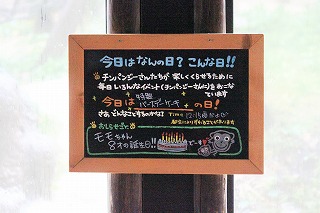 今日はなんの日？こんな日!!
チンパンジーさんたちが楽しくくらせるために
毎日いろんなイベント(チンパンジーさんに)をおこなっています
今日は特製バースデーケーキの日!
さあ、どんなことするのかな？Time 12:15頃および
都合により変わることがあります
おしらせ
モモちゃん
8才の誕生日!!
です